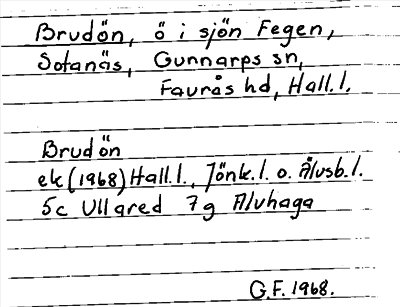 Brudön, ö i sjön Fegen,
Sotanäs, Gunnarps sn,
Faurås hd, Hall.l.
Brudön
ek (1968) Hall.l., Jönk.l. o. Älvsb.l.
5c Ullared 7g Älvhaga
G.F. 1968.